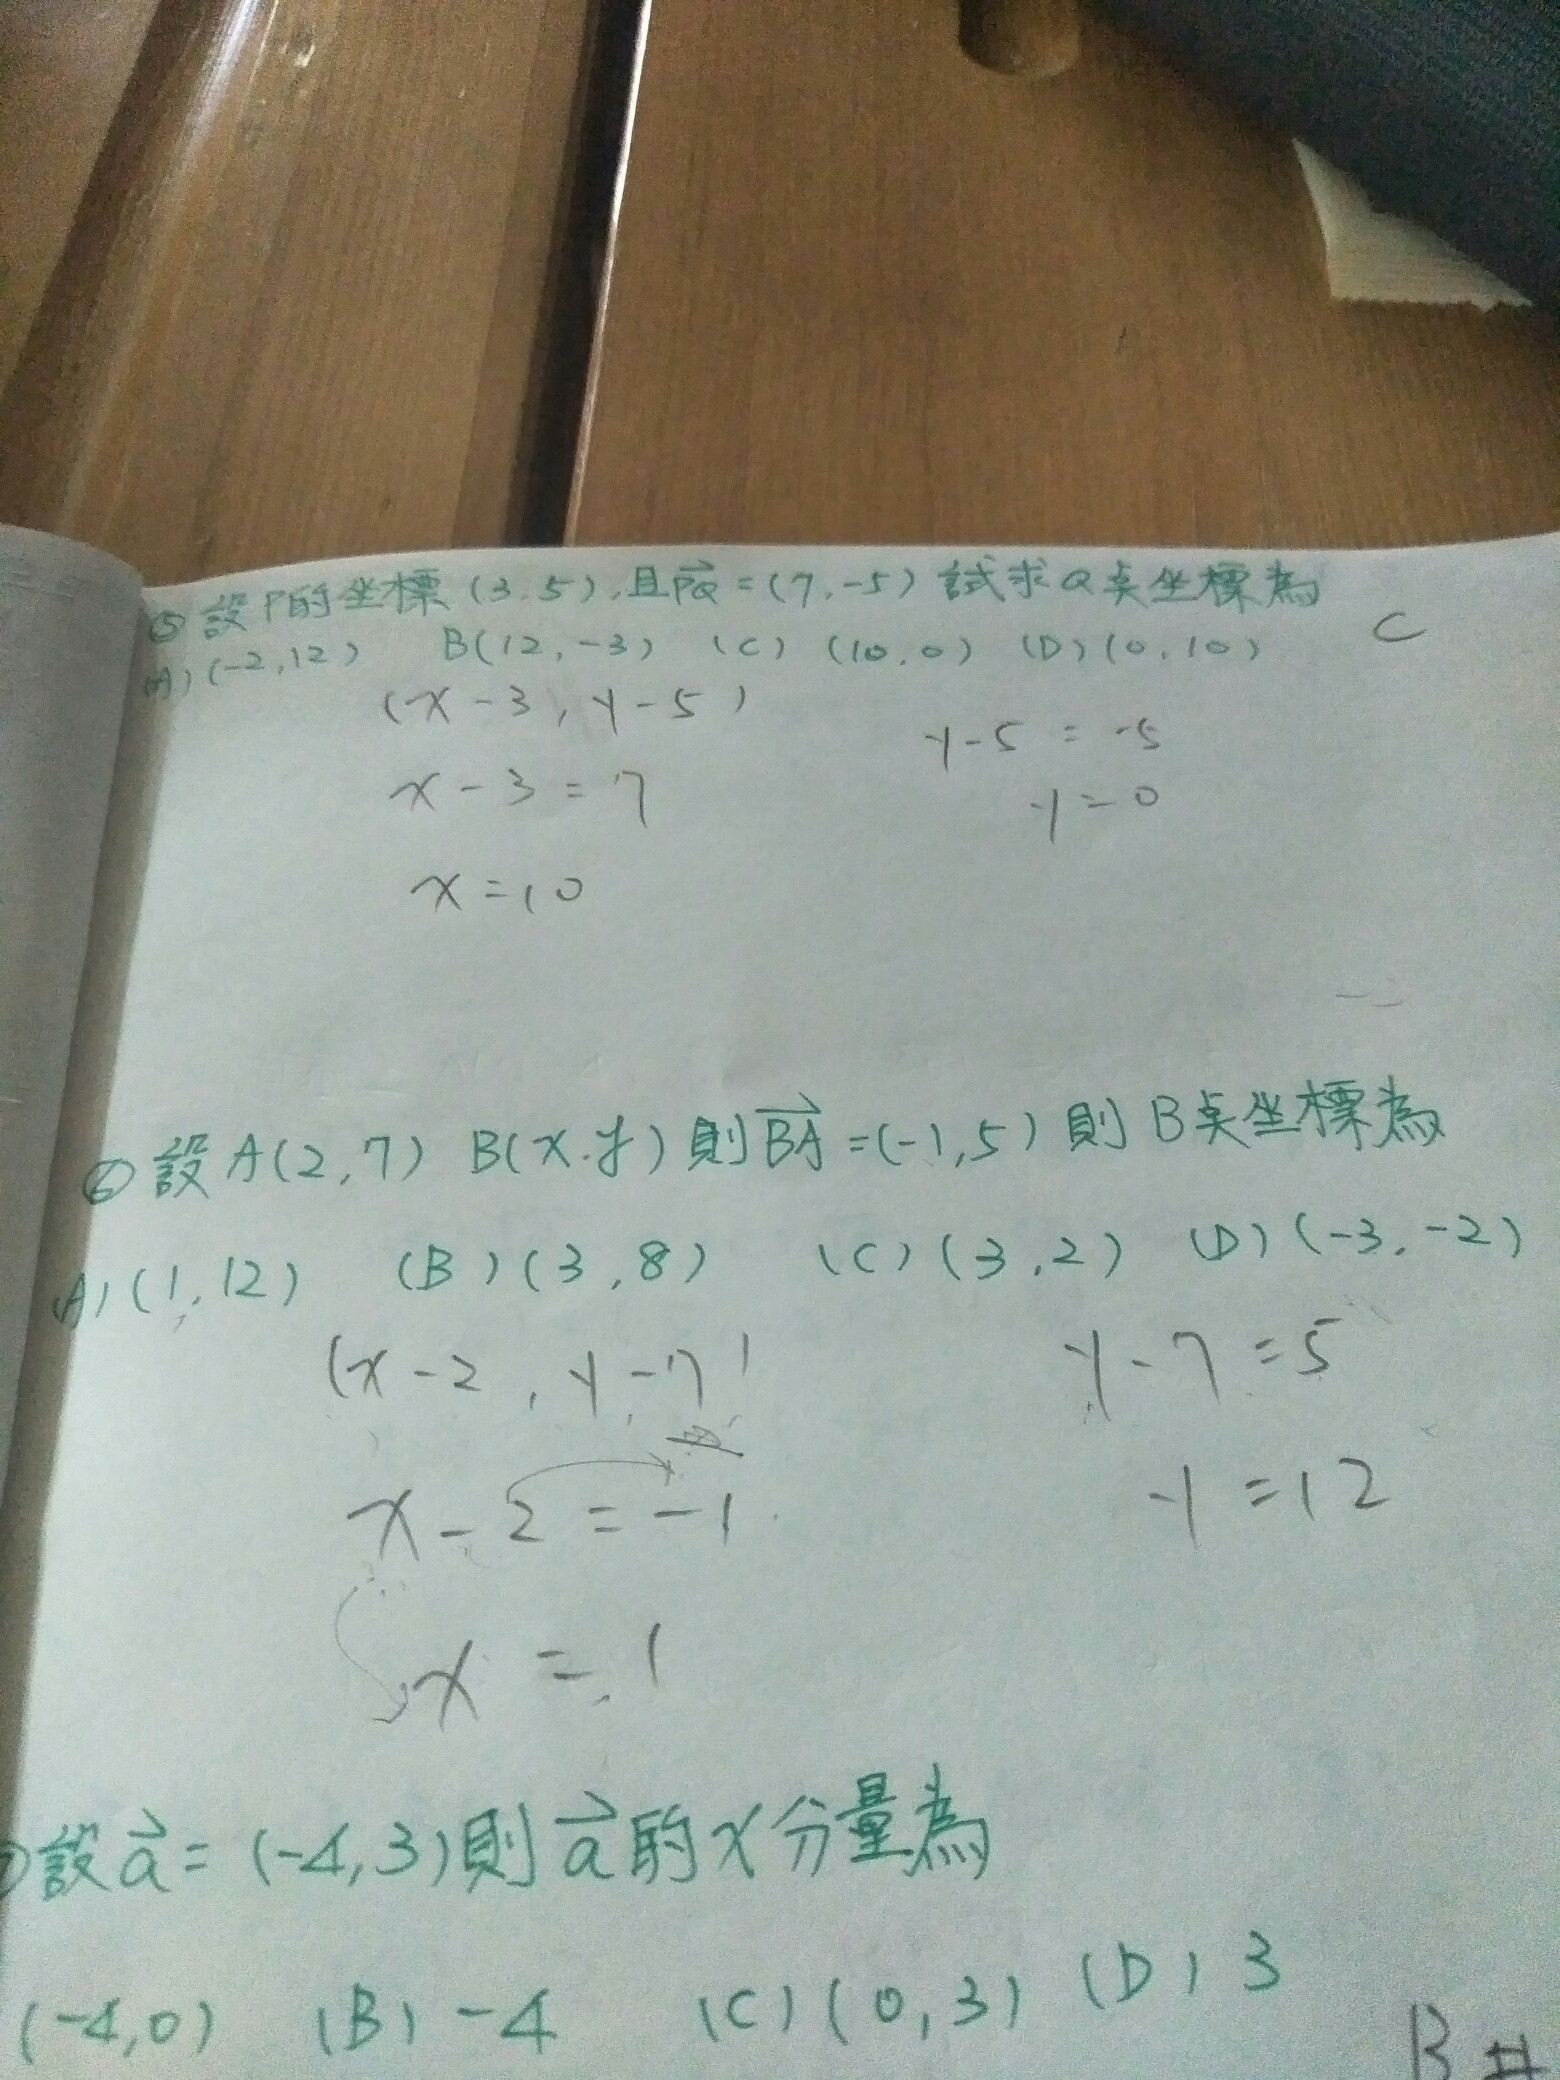 ⑤ 設P的坐標(3,5),且PQ=(7,-5)試求Q点坐標為
(A)(-2,12) B(12,-3) (C)(10,0) (D)(0,10) C
(x-3, y-5)
y-5=-5
x-3=7
y=0
x=10
⑥ 設A(2,7) B(x.y)則BA=(-1,5)則B点坐標為
(A)(1,12) (B)(3,8) (C)(3,2) (D)(-3,-2)
(x-2, y-7)
y-7=5
x-2=-1
y=12
x=1
設a=(-4,3)則a的x分量為
(-4,0) (B)-4 (C)(0,3) (D)3
B#